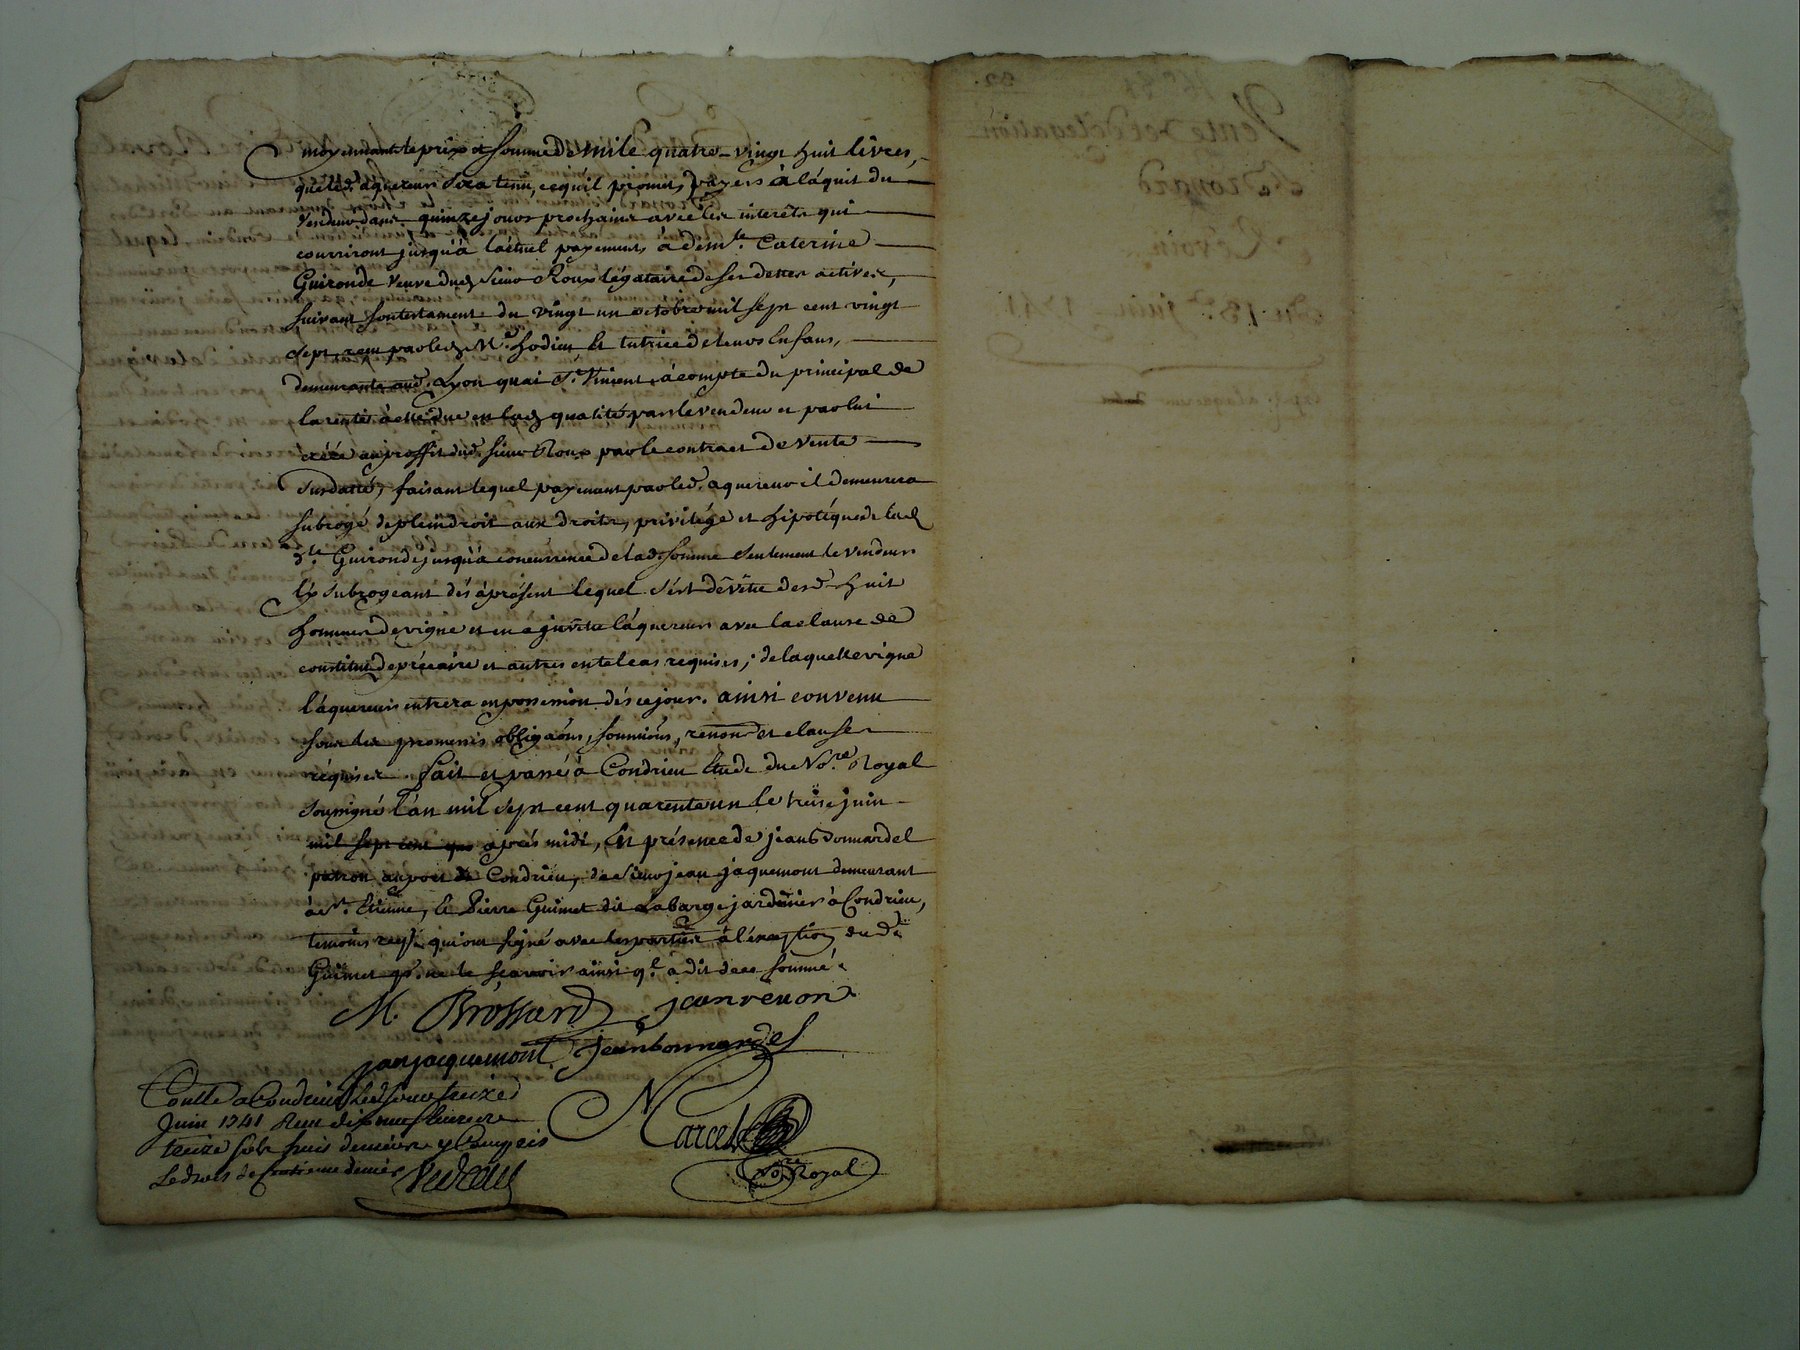 moyennant le prix et somme de mile quatre-vingt huit livres,
que led. aquereur sera tenu, ce qu'il promet, payer à l'aquit du
vendeur dans quinze jours prochains avec les interêts qui
courriront jusqu'à l'actuel payement, à dem.le Caterine
Guironde veuve dud. sieur Roux légataire de ses dettes actives,
suivant son testament du vingt un octobre mil sept cent vingt
sept, reçu par led. M.e hodieu et tutrice de leurs enfans,
demeurante aud. Lyon quai S.t Vincent, à compte du principal de
la rente à elle due en lad. qualité par le vendeur et par lui
créée au proffit dud. sieur Roux par le contract de vente
susdatté, faisant lequel payement par led. aquereur il demeurera
subrogé de plein droit aux droits, privilége et hipotéque de lad.
d.lle Guironde jusqu'à concurrence de lad. somme seulement le vendeur
l'y subrogeant dés àprésent lequel s'ést dévétu desd. huit
hommées de vigne et en a invétu l'aquereur avec la clause de
constitut de précaire et autres en tel cas requises; de laquelle vigne
l'aquereur entrera en possession dés ce jour. ainsi convenu
sous les promesses obligaõns, soumiõns, renonõns et clauses
requises. fait et passé à Condrieu Etude du No.re Royal
soussigné l'an mil sept cent quarente un le treize juin
mil sept cent qua après midi, En présence de jean Bonnardel
patron au port de Condrieu, de sieur jean jaquemont demeurant
à S.t Etienne, et Pierre Guimet dit Labarge jardinier à Condrieu,
temoins requis qui ont signé avec les parties à l'éxception dud.
Guimet p.r ne le sçavoir ainsi q.l à dit de ce sommé.
M. Brossard jean revon
jan jacquemont jean bonnardel
Conllé a Condrieu Led. jour treize
Juin 1741 Reçu dix neuf livres
treize sols huit deniers y Compris
Le droit de Centieme denier
Marcel
No.re Royal
Vente et délégation
Brossard
Revon
Du 13.e juin 1741